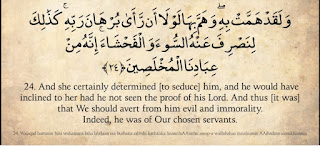 وَلَقَدْ هَمَّتْ بِهِۦ وَهَمَّ بِهَا لَوْلَآ أَن رَّءَا بُرْهَٰنَ رَبِّهِۦ كَذَٰلِكَ
لِنَصْرِفَ عَنْهُ ٱلسُّوٓءَ وَٱلْفَحْشَآءَ إِنَّهُۥ مِنْ
عِبَادِنَا ٱلْمُخْلَصِينَ ﴿٢٤﴾
24. And she certainly determined [to seduce] him, and he would have
inclined to her had he not seen the proof of his Lord. And thus [it was]
that We should avert from him evil and immorality.
Indeed, he was of Our chosen servants.